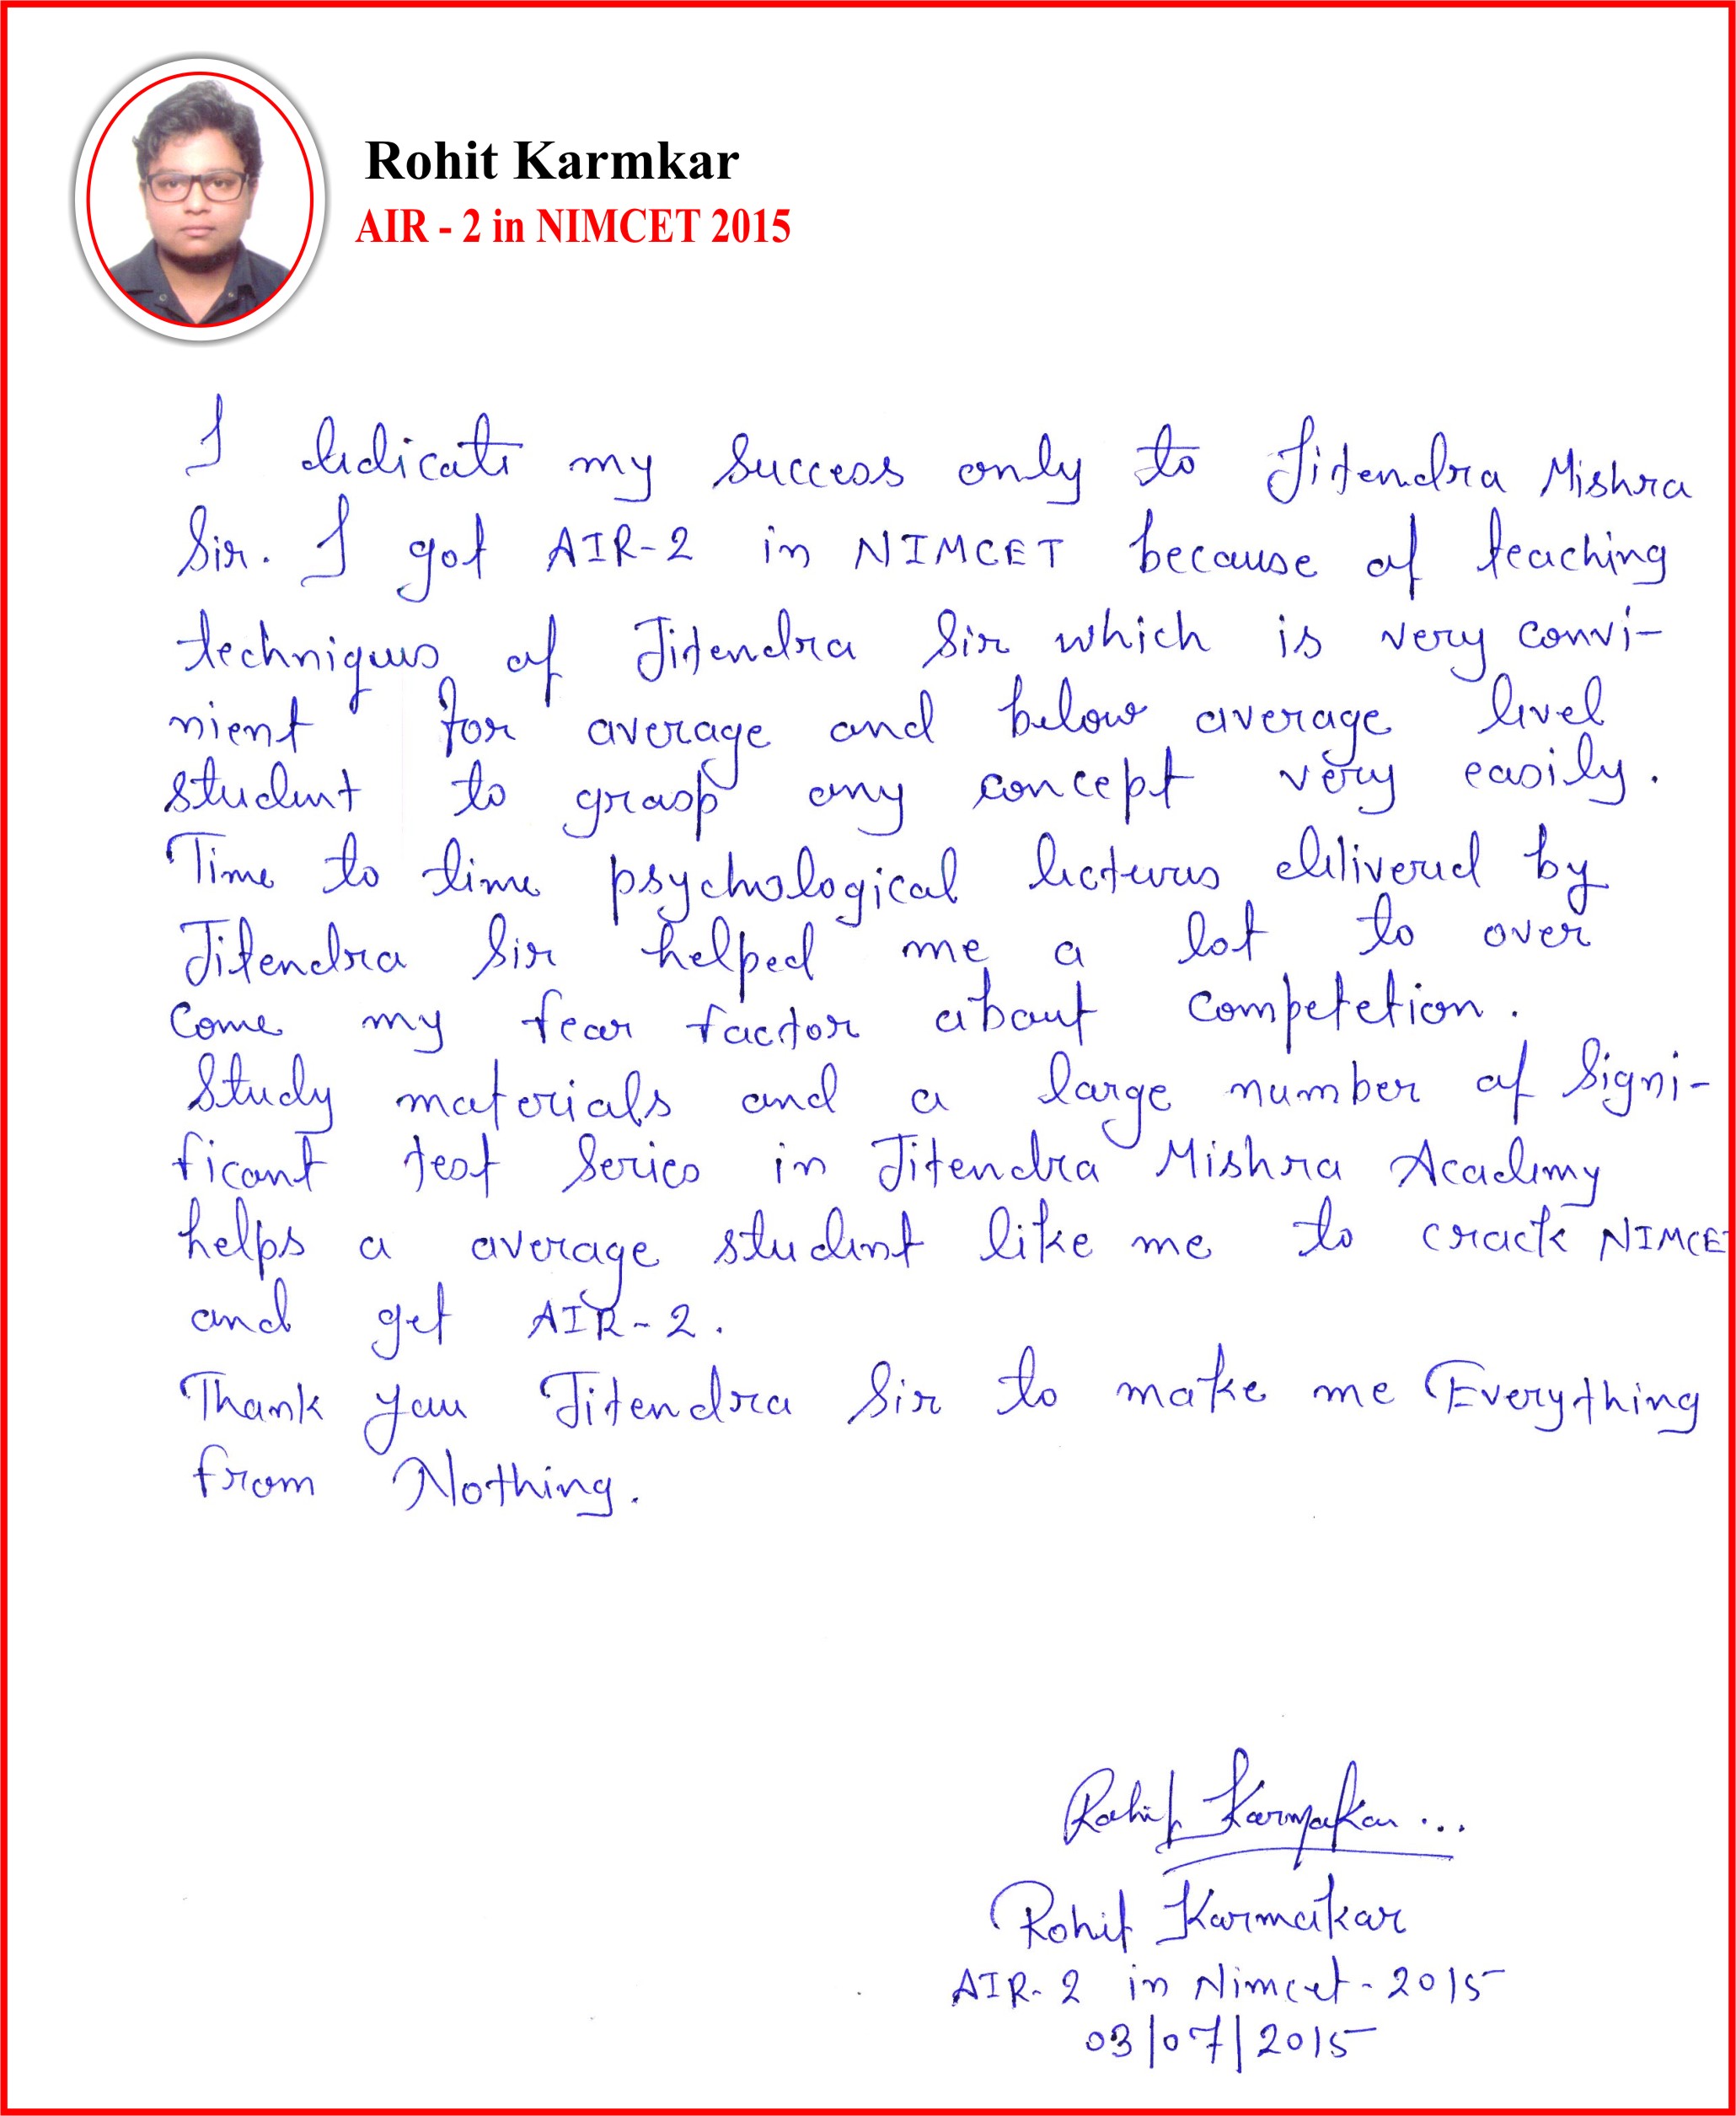 Rohit Karmkar
AIR - 2 in NIMCET 2015
I dedicate my success only to Jitendra Mishra
Sir. I got AIR-2 in NIMCET because of teaching
techniques of Jitendra Sir which is very convi-
nient for average and below average level
student to grasp any concept very easily.
Time to time psychological lectures delivered by
Jitendra Sir helped me a lot to over
come my fear factor about competetion.
Study materials and a large number of Signi-
ficant test Series in Jitendra Mishra Academy
helps a average student like me to crack NIMCET
and get AIR-2.
Thank you Jitendra Sir to make me Everything
from Nothing.
Rohit Karmakar...
Rohit Karmakar
AIR-2 in Nimcet-2015
03/07/2015